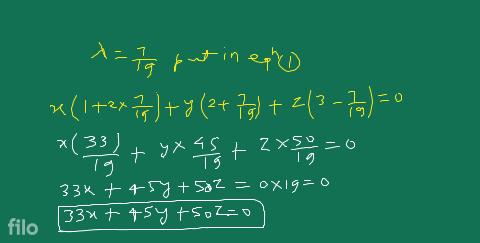 λ = 7/19 put in eqⁿ ①
x(1+2×7/19) + y(2+7/19) + z(3-7/19) = 0
x(33)/19 + y×45/19 + z×50/19 = 0
33x + 45y + 50z = 0×19 = 0
33x + 45y + 50z = 0
filo